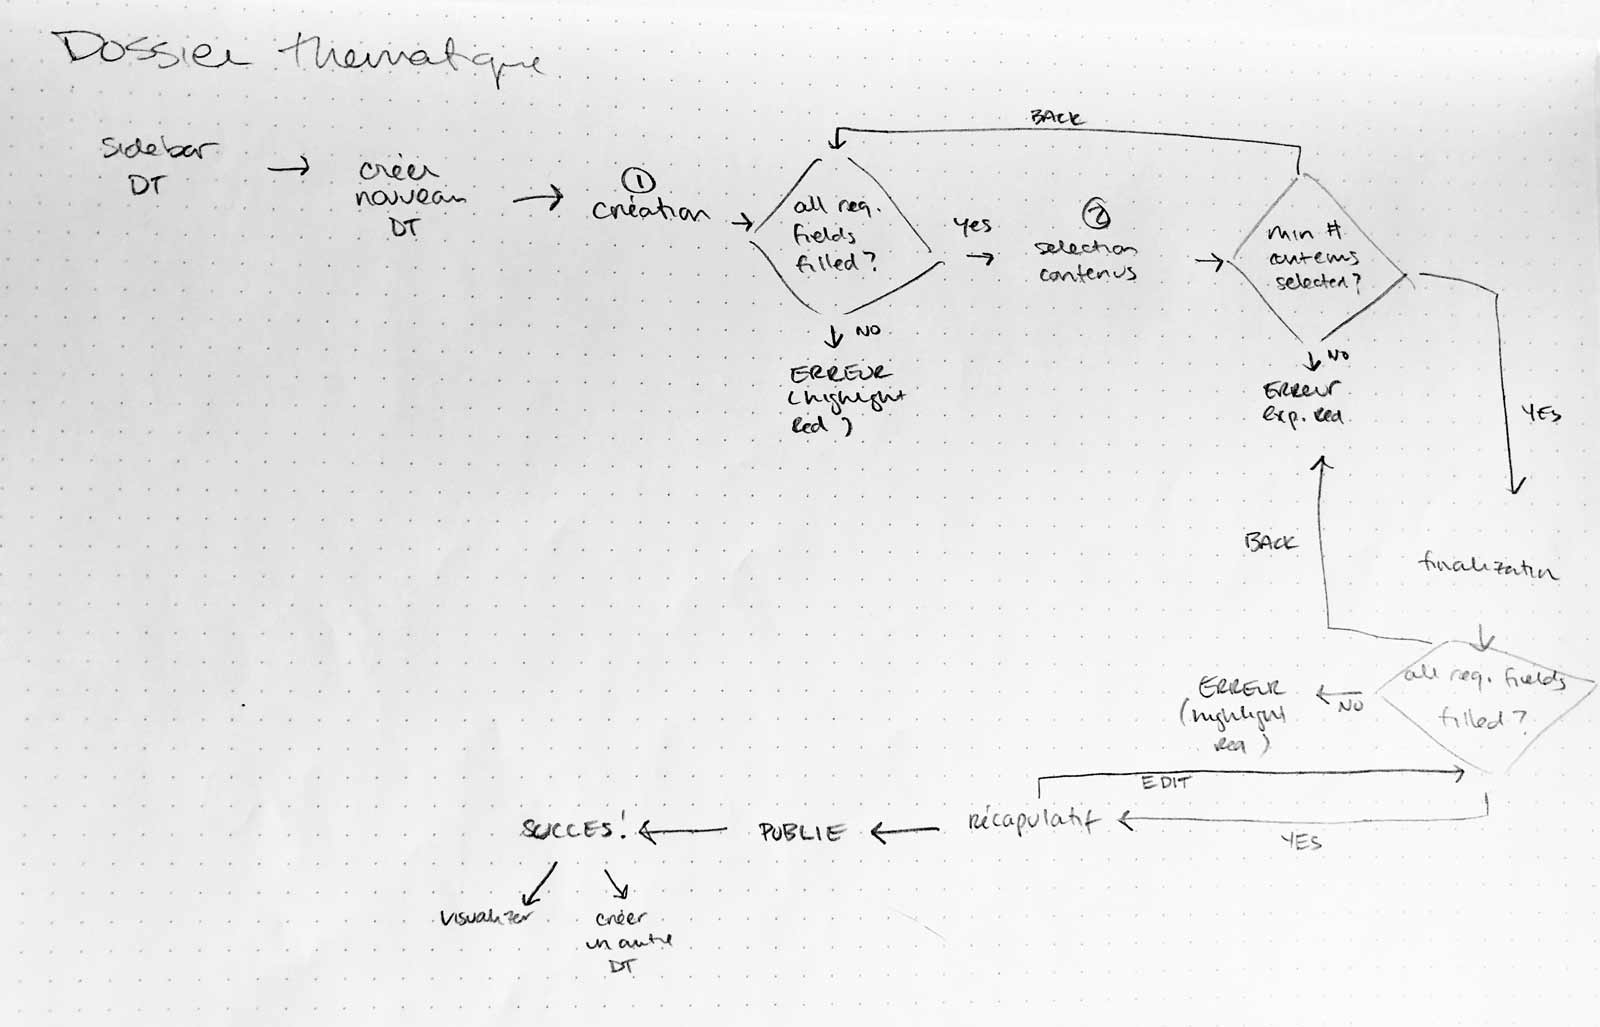 Dossier thematique
sidebar
DT
créer
nouveau
DT
1
création
all req.
fields
filled?
NO
ERREUR
(highlight
red)
BACK
yes
2
selection
contenus
min #
contenus
selected?
NO
ERREUR
exp. red
YES
BACK
finalization
all req. fields
filled?
NO
ERREUR
(highlight
red)
EDIT
YES
récapulatif
PUBLIE
SUCCES!
visualizer
créer
un autre
DT